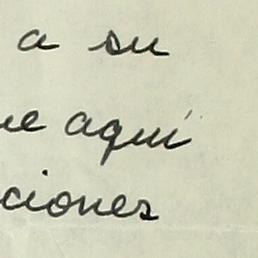 a su
ue aquí
ciones